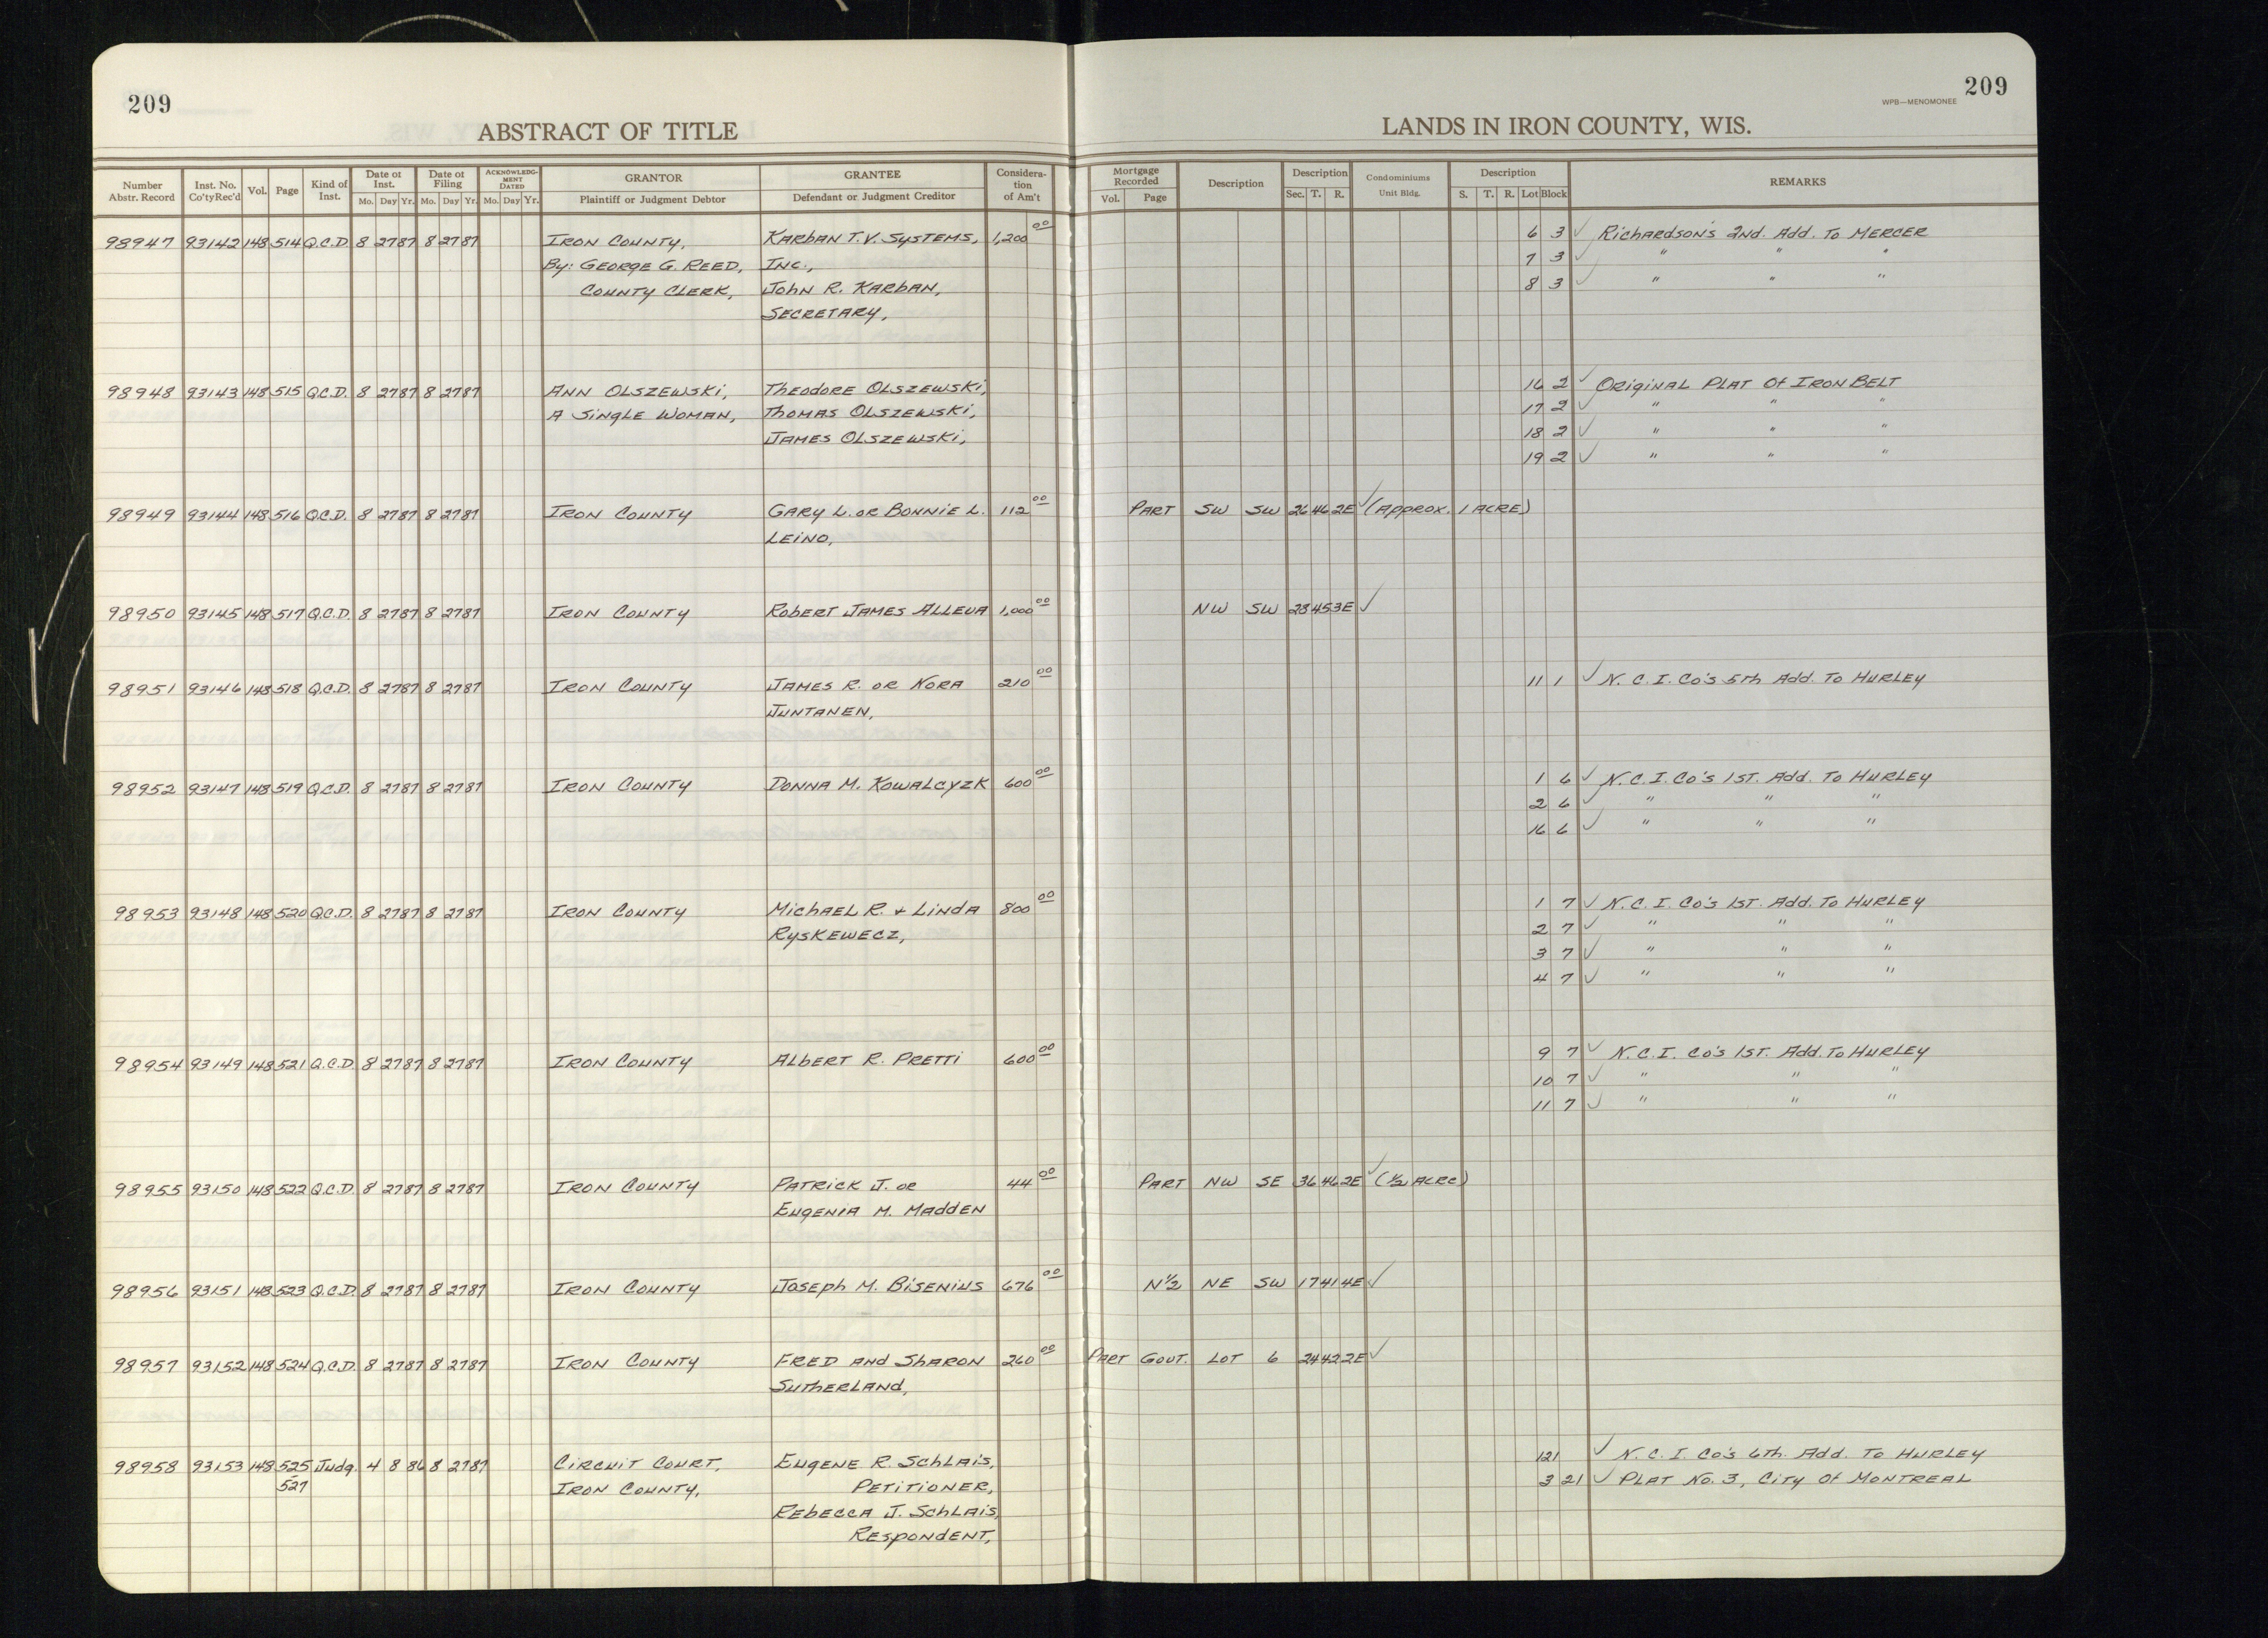 209
209
WPB—MENOMONEE
ABSTRACT OF TITLE
LANDS IN IRON COUNTY, WIS.
Number Abstr. Record | Inst. No. Co'tyRec'd | Vol. | Page | Kind of Inst. | Date of Inst. Mo. Day Yr. | Date of Filing Mo. Day Yr. | ACKNOWLEDGMENT DATED Mo. Day Yr. | GRANTOR Plaintiff or Judgment Debtor | GRANTEE Defendant or Judgment Creditor | Consideration of Am't | Mortgage Recorded Vol. Page | Description | Description Sec. T. R. | Condominiums Unit Bldg. | Description S. T. R. Lot Block | REMARKS
98947 93142 148 514 Q.C.D. 8 27 87 8 27 87 IRON COUNTY, KARBAN T.V. SYSTEMS, 1,200 00 6 3 ✓ RICHARDSON'S 2ND. ADD. TO MERCER
BY: GEORGE G. REED, INC., 7 3 ✓ " " "
COUNTY CLERK, JOHN R. KARBAN, 8 3 ✓ " " "
SECRETARY,
98948 93143 148 515 Q.C.D. 8 27 87 8 27 87 ANN OLSZEWSKI, THEODORE OLSZEWSKI, 16 2 ✓ ORIGINAL PLAT OF IRON BELT
A SINGLE WOMAN, THOMAS OLSZEWSKI, 17 2 ✓ " " "
JAMES OLSZEWSKI, 18 2 ✓ " " "
19 2 ✓ " " "
98949 93144 148 516 Q.C.D. 8 27 87 8 27 87 IRON COUNTY GARY L. OR BONNIE L. 112 00 PART SW SW 26 46 2E ✓ (APPROX. 1 ACRE)
LEINO,
98950 93145 148 517 Q.C.D. 8 27 87 8 27 87 IRON COUNTY ROBERT JAMES ALLEVA 1,000 00 NW SW 28 45 3E ✓
98951 93146 148 518 Q.C.D. 8 27 87 8 27 87 IRON COUNTY JAMES R. OR NORA 210 00 11 1 ✓ N. C. I. CO'S 5TH ADD. TO HURLEY
JUNTANEN,
98952 93147 148 519 Q.C.D. 8 27 87 8 27 87 IRON COUNTY DONNA M. KOWALCYZK 600 00 1 6 ✓ N. C. I. CO'S 1ST. ADD. TO HURLEY
2 6 ✓ " " "
16 6 ✓ " " "
98953 93148 148 520 Q.C.D. 8 27 87 8 27 87 IRON COUNTY MICHAEL R. + LINDA 800 00 1 7 ✓ N. C. I. CO'S 1ST. ADD. TO HURLEY
RYSKEWECZ, 2 7 ✓ " " "
3 7 ✓ " " "
4 7 ✓ " " "
98954 93149 148 521 Q.C.D. 8 27 87 8 27 87 IRON COUNTY ALBERT R. PRETTI 600 00 9 7 ✓ N. C. I. CO'S 1ST. ADD. TO HURLEY
10 7 ✓ " " "
11 7 ✓ " " "
98955 93150 148 522 Q.C.D. 8 27 87 8 27 87 IRON COUNTY PATRICK J. OR 44 00 PART NW SE 36 46 2E ✓ (1/2 ACRE)
EUGENIA M. MADDEN
98956 93151 148 523 Q.C.D. 8 27 87 8 27 87 IRON COUNTY JOSEPH M. BISENIUS 676 00 N1/2 NE SW 17 41 4E ✓
98957 93152 148 524 Q.C.D. 8 27 87 8 27 87 IRON COUNTY FRED AND SHARON 260 00 PART GOVT. LOT 6 24 42 2E ✓
SUTHERLAND,
98958 93153 148 525 Judg. 4 8 86 8 27 87 CIRCUIT COURT, EUGENE R. SCHLAIS, 121 ✓ N. C. I. CO'S 6TH. ADD. TO HURLEY
- 527 IRON COUNTY, PETITIONER, 3 21 ✓ PLAT NO. 3, CITY OF MONTREAL
REBECCA J. SCHLAIS,
RESPONDENT,